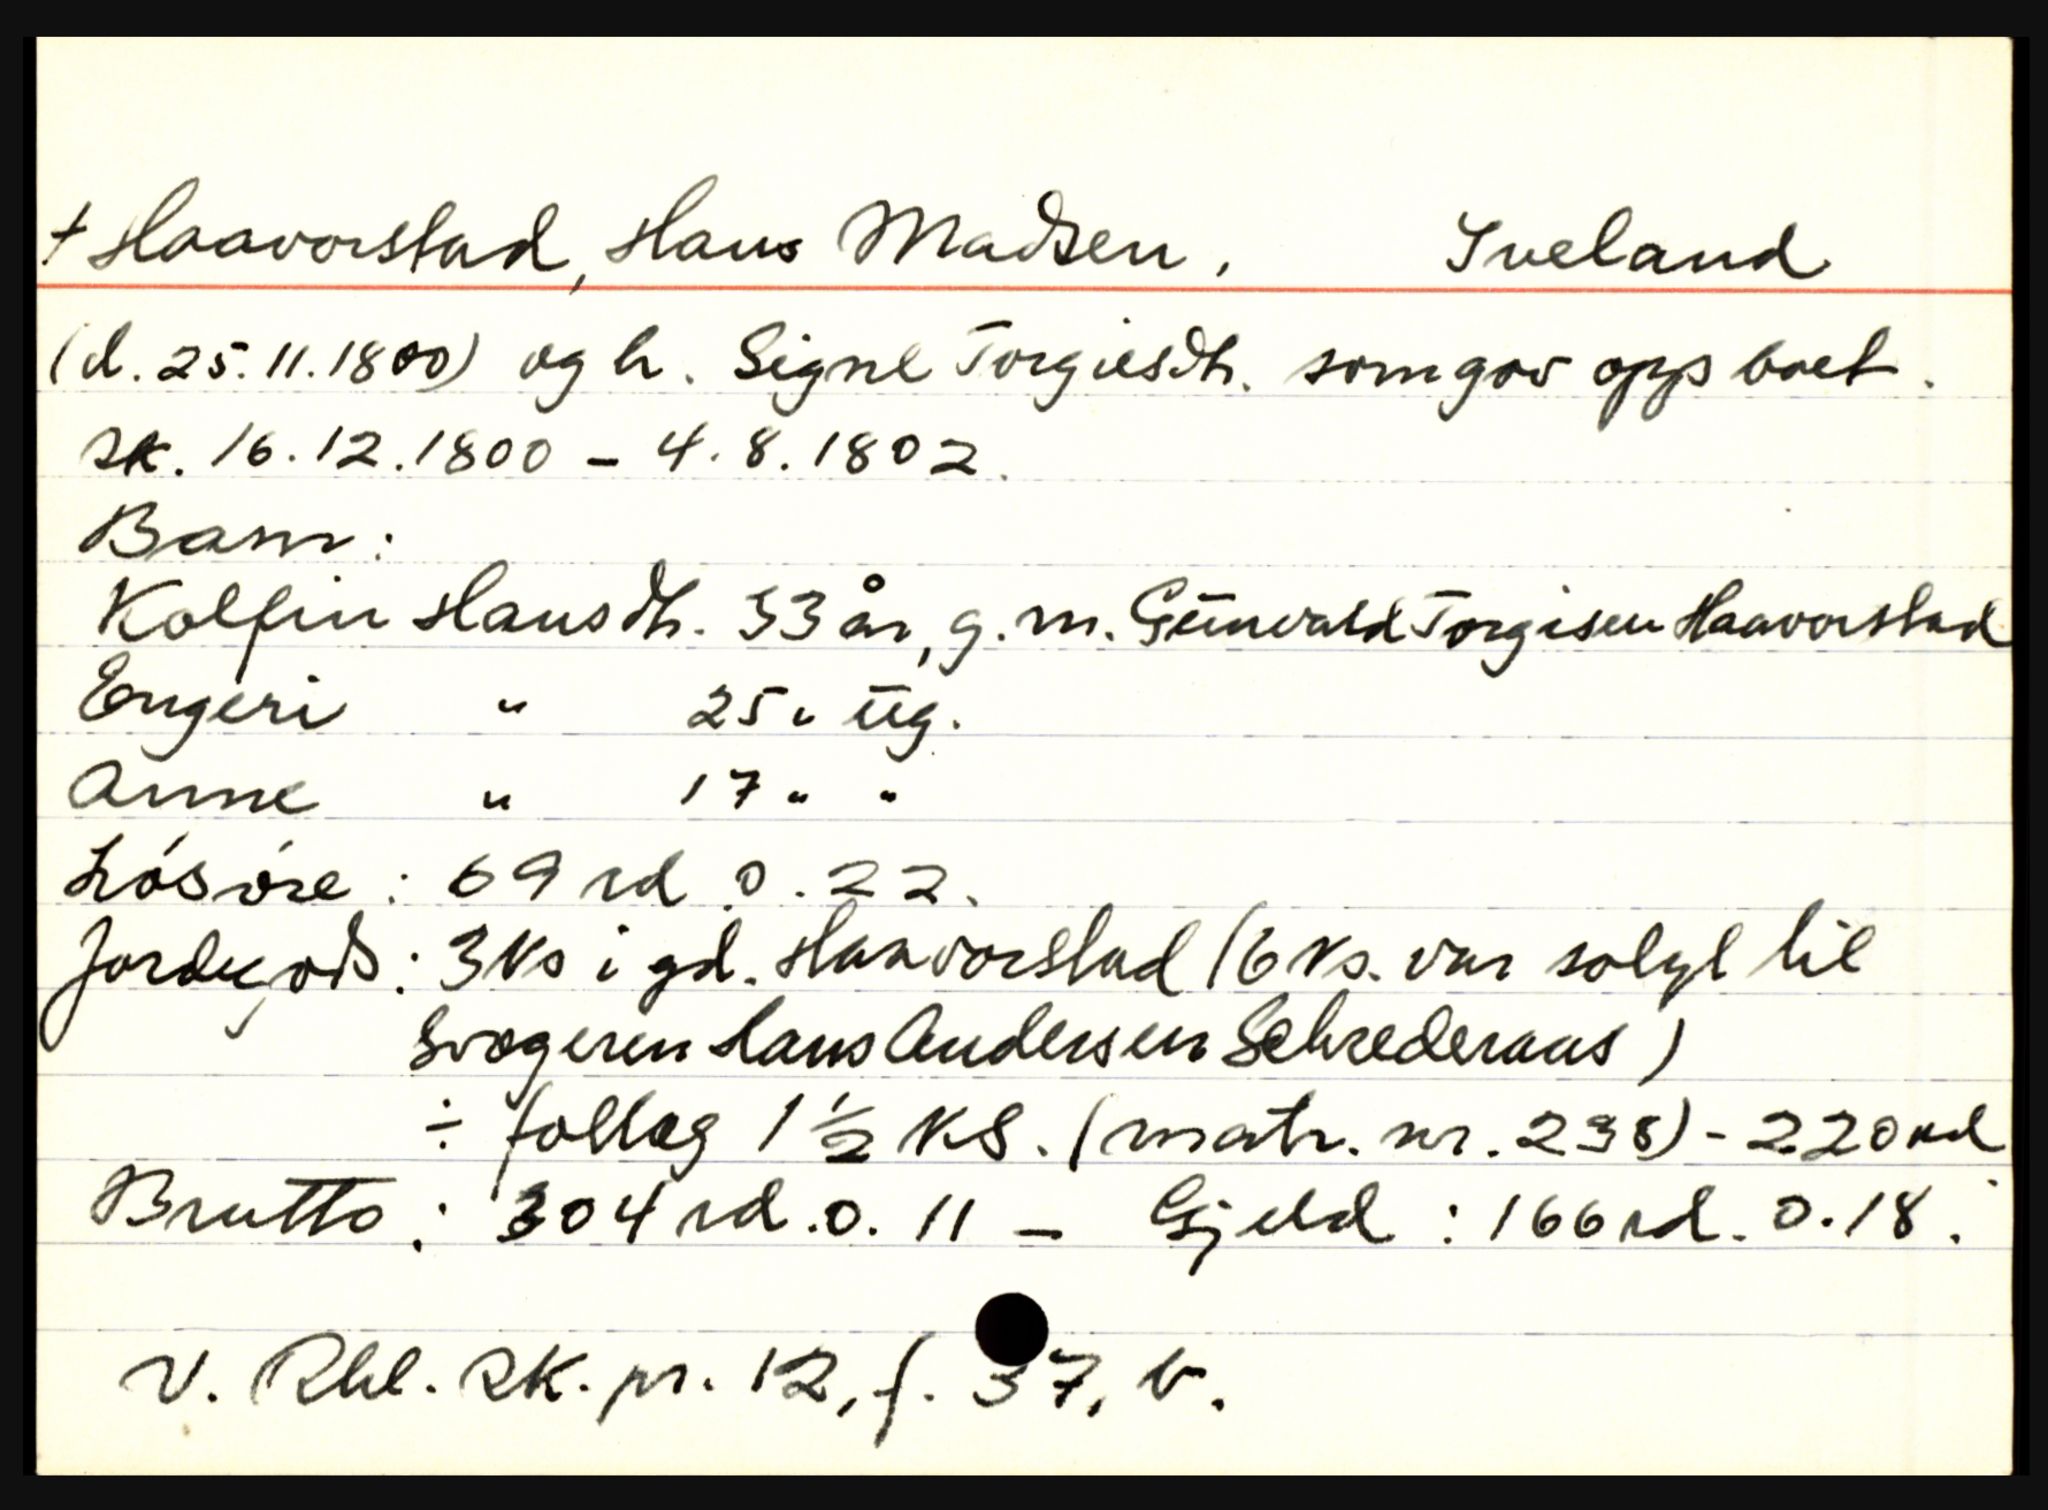 + Haavorstad, Hans Madsen, Iveland
(d. 25.11.1800) og h. Signe Torgiesdtr. som gav opp boet.
sk. 16.12.1800 - 4.8.1802.
Barn:
Kolfin Hansdtr. 33 år, g.m. Gunvald Torgisen Haavorstad
Engeri " 25 " ug.
Anne " 17 " "
Lósøre: 69 rd. 0.22.
Jordegods: 3 ks i gd. Haavorstad (6 ks. var solgt til
svogeren Hans Andersen Schrederaas)
÷ follog 1 1/2 ks. (matr. nr. 238) - 220 rd
Brutto: 304 rd. 0. 11 - Gjeld: 166 rd. 0.18.
V. Rbl. sk. pr. 12, f. 37, b.